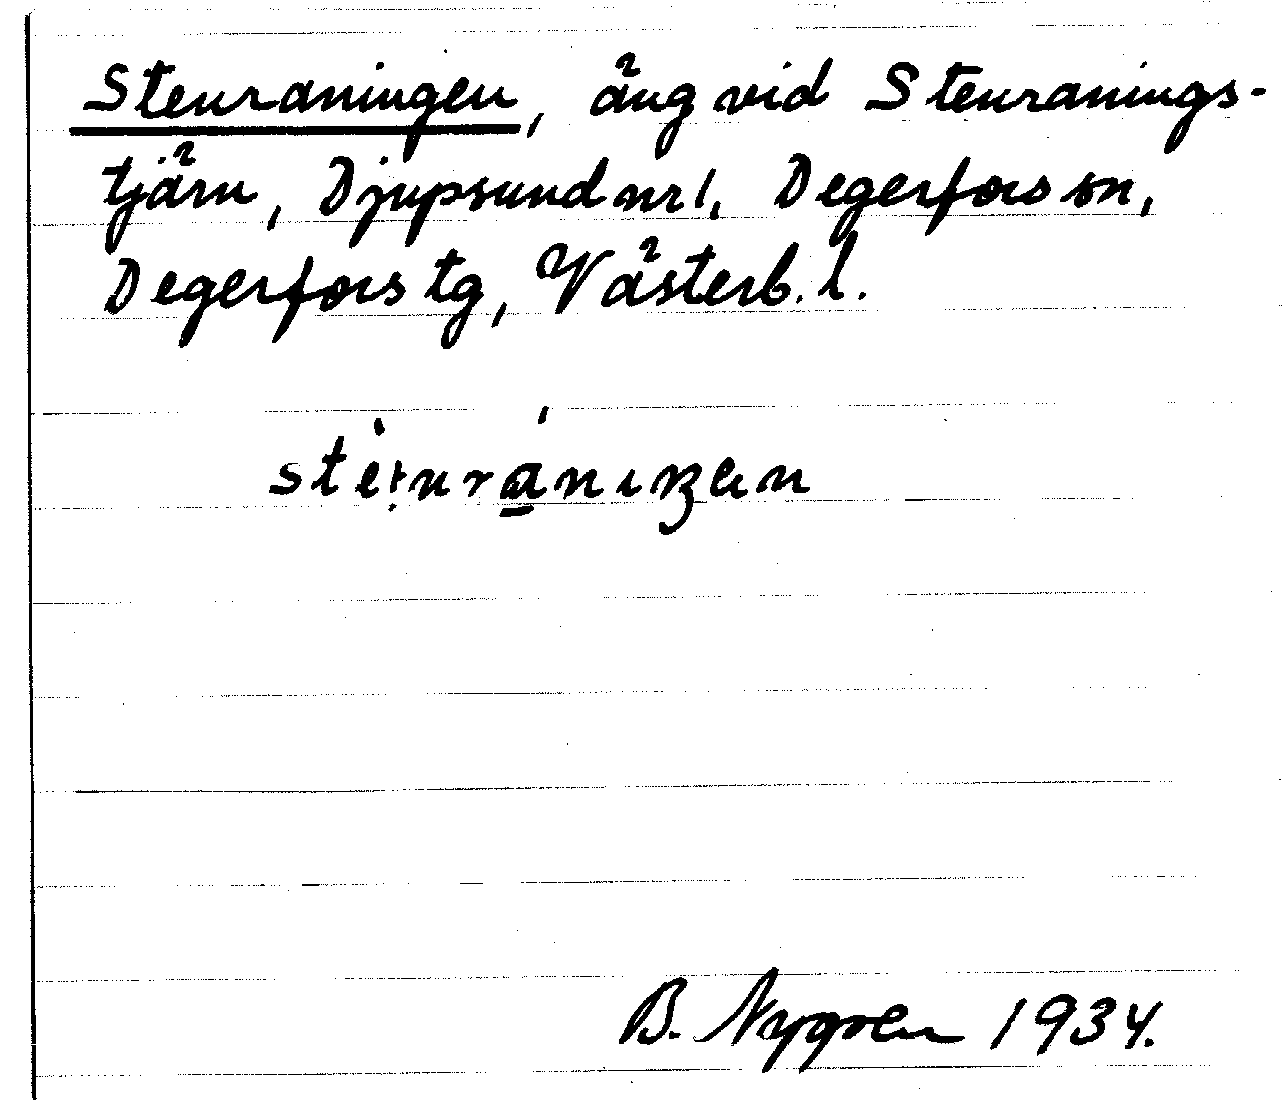 Stenraningen, äng vid Stenranings-
tjärn, Djupsund nr 1, Degerfors sn,
Degerfors tg, Västerb. l.
B. Nygren 1934.